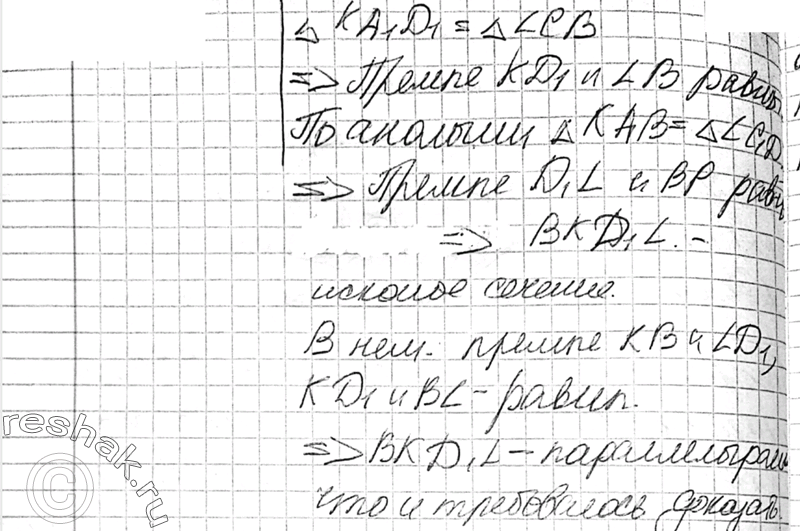 △ KA₁D₁ = △ LCB
=> Прямые KD₁ и LB равны
По аналогии △ KAB = △ LC₁D₁
=> Прямые D₁L и BP равны
=> BKD₁L. -
искомое сечение.
В нем. прямые KB и LD₁,
KD₁ и BL - равны.
=> BKD₁L - параллелограмм
что и требовалось доказать.
© reshak.ru